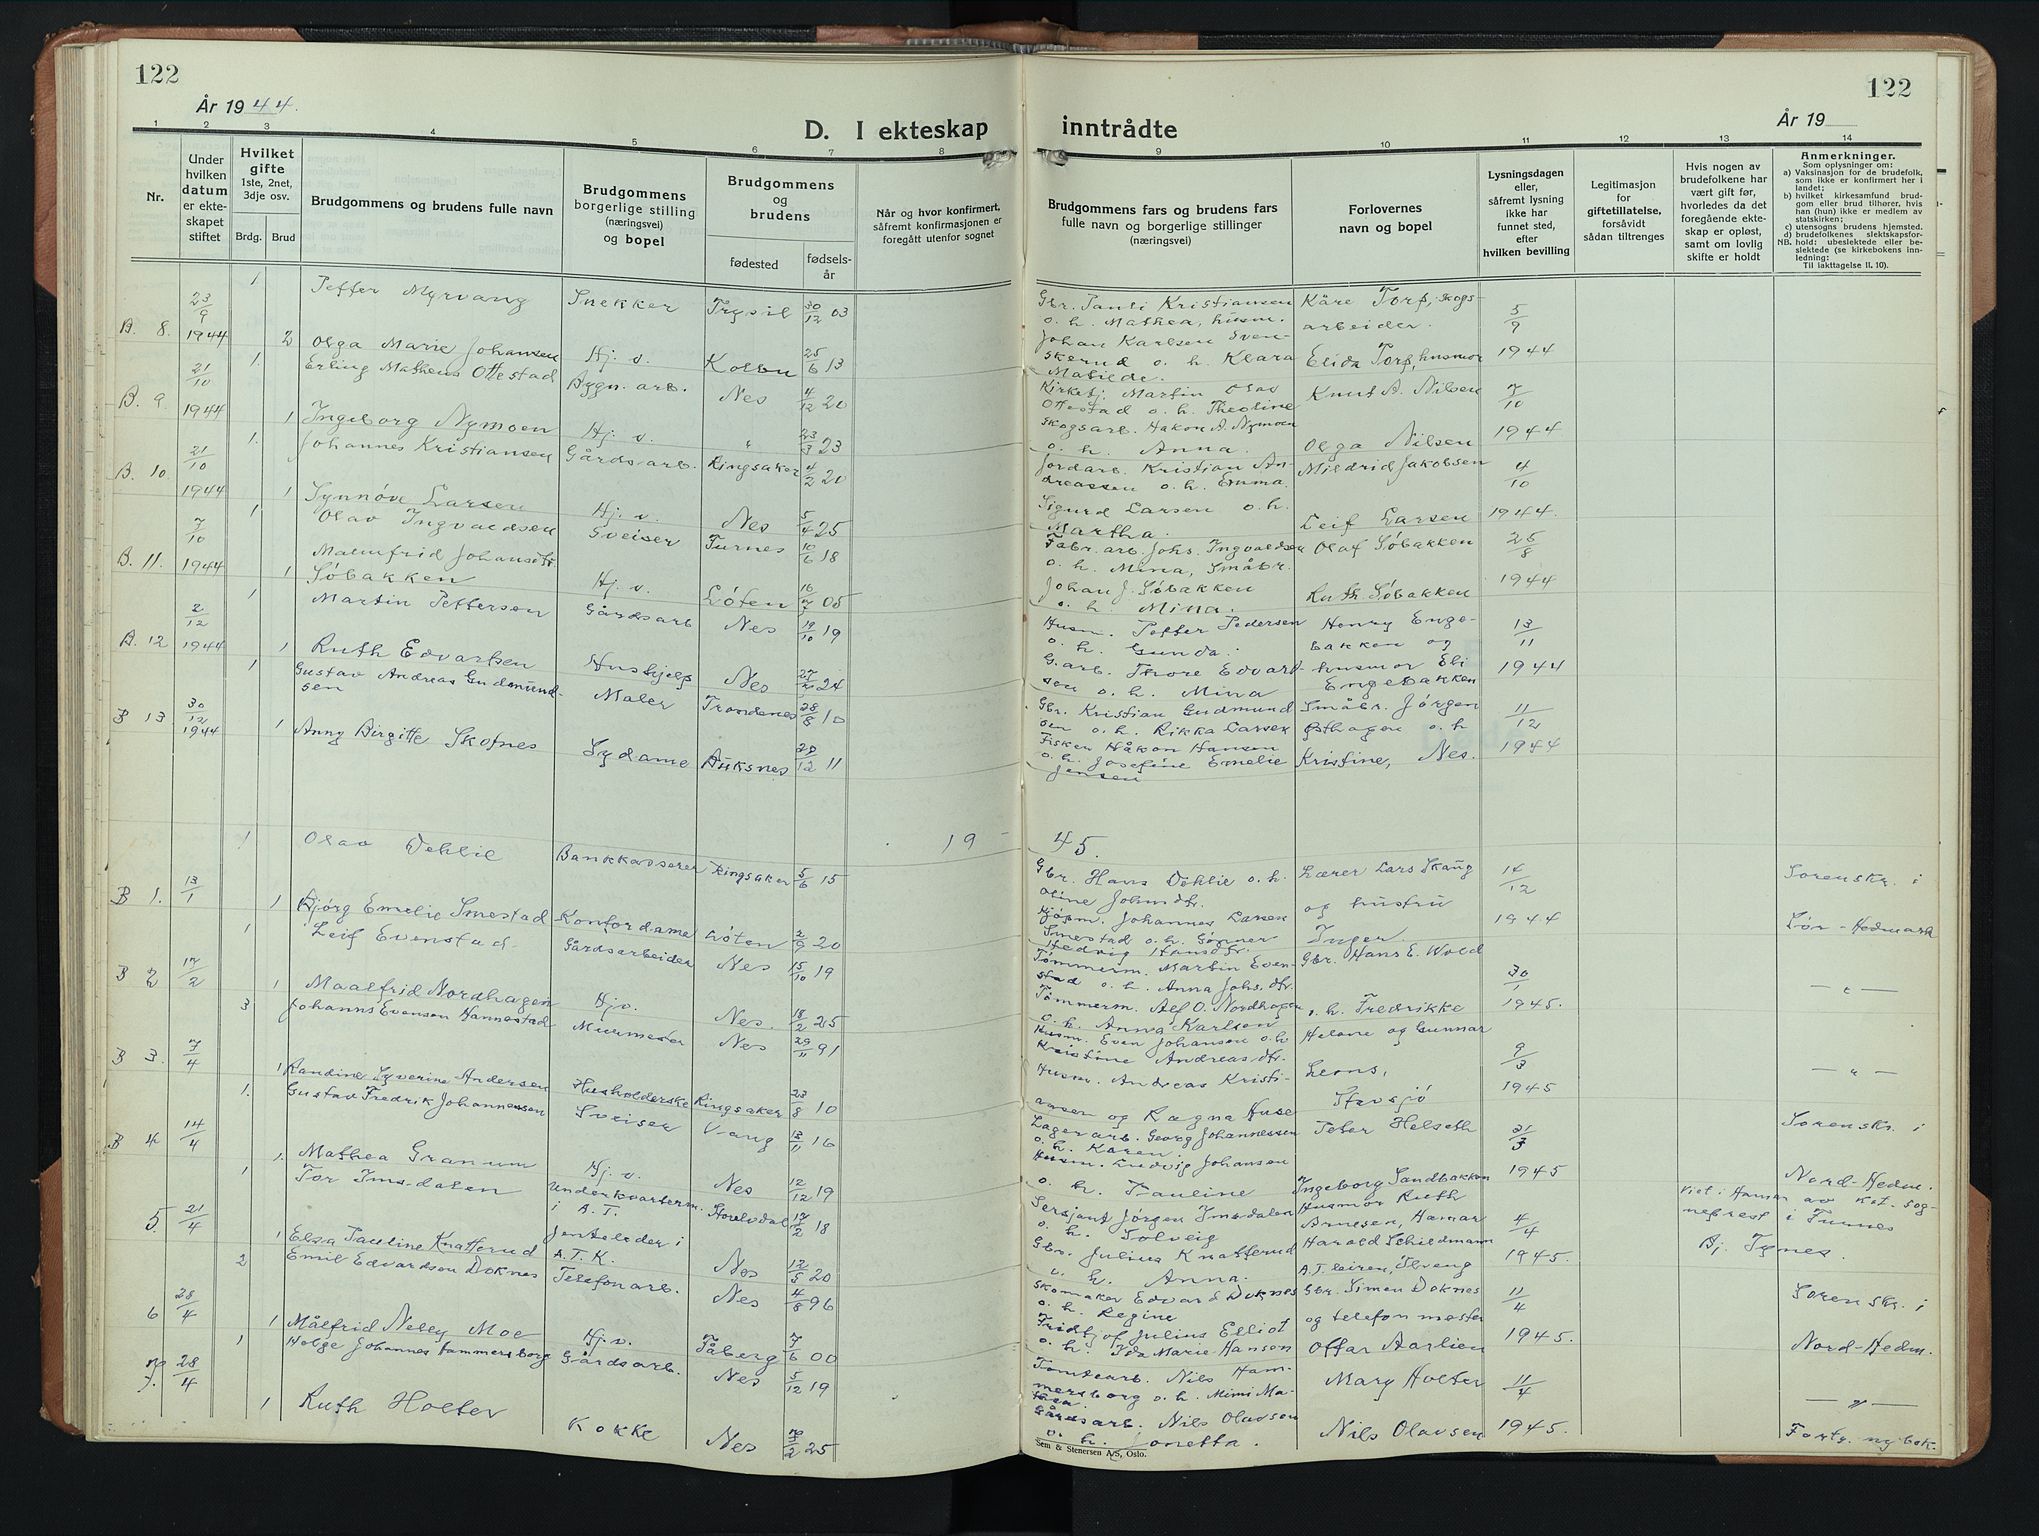 122
År 1944.
D. I ekteskap
1 2 3 4 5 6 7 8
Nr.
Under hvilken datum er ekteskapet stiftet
Hvilket gifte
1ste, 2net, 3dje osv.
Brdg. Brud
Brudgommens og brudens fulle navn
Brudgommens borgerlige stilling (næringsvei) og bopel
Brudgommens og brudens
fødested fødselsår
Når og hvor konfirmert, såfremt konfirmasjonen er foregått utenfor sognet
B. 8. 23/9 1944 1 Petter Myrvang Snekker Trysil 30/12 03
2 Olga Marie Johansen Hj. v. Kolbu 25/6 13
B. 9. 21/10 1944 1. Erling Mathens Ottestad Bygn. arb. Nes 4/12 20
1 Ingeborg Nymoen Hj. v. " 23/3 23
B. 10. 21/10 1944 1. Johannes Kristiansen Gårdsarb. Ringsaker 4/2 20
1 Synnöve Larsen Hj. v. Nes 5/4 25
B. 11. 7/10 1944 1 Olav Ingvaldsen Sveiser Furnes 10/6 18
1 Malmfrid Johansdtr. Søbakken Hj. v. Löten 05
A. 12 2/12 1944 1 Martin Pettersen Gårdsarb Nes 19/10 19
1 Ruth Edvartsen Hushjelp Nes 24
B 13. 30/12 1944 1 Gustav Andreas Gudmundsen Maler Trondenes 28/8 10
1 Anny Birgitte Skotnes Sydame Buksnes 20/12 11
19
B 1. 13/1 1 Olav Dehlie Bankkasserer Ringsaker 5/6 15
1 Bjørg Emelie Smestad Kontordame Løten 2/9 20
B 2 17/2 1 Leif Evenstad Gårdsarbeider Nes 15/10 19
1 Maalfrid Nordhagen Hjv. Nes. 18/2 25
B 3. 7/4 3 Johannes Evensen Hannestad Murmester Nes 29/11 91
1 Randine Syverine Andersen Husholderske Ringsaker 23/8 10
B 4. 14/4 1. Gustav Fredrik Johannessen Sveiser Vang 13/11 16
1. Mathea Granum Hj. v. Nes 12/12 19
5. 21/4 1 Tor Imsdalen Underkvarterm. i A.T. Storelvdal 17/2 18
1 Elsa Pauline Knatterud Jenteleder i A.T.K. Nes 12/5 20
6 28/4 2 Emil Edvardsen Doknes Telefonarb. Nes 4/8 96
1 Målfrid Nelly Moe Hj. v. Fåberg 7/6 00
7. 28/4 1 Helge Johannes Hammersborg Gårdsarb. Nes 5/12 19
1 Ruth Holter Kokke Nes 25
122
År 19
inntrådte
9 10 11 12 13 14
Brudgommens fars og brudens fars fulle navn og borgerlige stillinger (næringsvei)
Forlovernes navn og bopel
Lysningsdagen eller, såfremt lysning ikke har funnet sted, efter hvilken bevilling
Legitimasjon for giftetillatelse, forsåvidt sådan tiltrenges
Hvis nogen av brudefolkene har vært gift før, hvorledes da det foregående ekteskap er opløst, samt om lovlig skifte er holdt
Anmerkninger.
Som oplysninger om:
a) Vaksinasjon for de brudefolk, som ikke er konfirmert her i landet;
b) hvilket kirkesamfund brudgom eller brud tilhører, hvis han (hun) ikke er medlem av statskirken;
c) utensogns brudens hjemsted.
d) brudefolkenes slektskapsforhold: ubeslektede eller beslektede (se kirkebokens innledning:
NB. Til iakttagelse II. 10).
Gbr. Pauli Kristiansen o. h. Mathea, husm. Kåre Torp, skogsarbeider. 5/9 1944
Johan Karlsen Svenskerud o. h. Klara Matilde. Elida Torp, husmor
Kirketj. Martin Olav Ottestad o. h. Theoline Knut A. Nilsen 7/10 1944
Skogsarb. Hakon A. Nymoen o. h. Anna. Olga Nilsen
Jordarb. Kristian Andreassen o. h. Emma. Mildrid Jakobsen 4/10 1944.
Sigurd Larsen o. h. Martha. Leif Larsen
Fabr. arb. Johs. Ingvaldsen o. h. Mina, Olaf Søbakken 25/8 1944
Småbr. Johan J. Søbakken o. h. Mina. Ruth Søbakken
Husm. Petter Pedersen o. h. Gunda. Henry Engebakken og 13/11 1944
G.arb. Thore Edvardsen o. h. Mina husmor Eli Engebakken
Gbr. Kristian Gudmundsen o. h. Rikka Larsen Småbr. Jørgen Østhagen o. h 11/12 1944
Fisker Håkon Hansen o. h. Josefine Emelie Jensen Kristine, Nes.
45.
Gbr. Hans Dehlie o. h. Oline Johnsdtr. Lærer Lars Skaug og hustru 14/12 1944 Sorenskr. i Sør-Hedmark
Kjøpm. Johannes Larsen Smestad o. h. Gunner Hedvig Hansdtr. Inger.
Tømmerm. Martin Evenstad o. h. Anna Johs. dtr. Gbr. Hans E. Wold 30/1 1945. — " —
Tömmerm. Alf O. Nordhagen o. h. Anna Karlsen o. h. Fredrikke
Husm. Even Johansen o. h. Kristine Andreasdtr. Helene og Gunnar 9/3 1945 — " —
Husm. Andreas Kristiansen og Ragna Huse Leons, Stavsjö
Lagerarb. Georg Johannessen o. h. Karen. Peter Helseth 21/3 1945 Sorenskr. i Nord-Hedm.
Husm. Ludvig Johansen o. h. Pauline Ingeborg Sandbakken
Sersjant Jörgen Imsdalen o. h. Solveig Husmor Ruth Arnesen, Hamar 4/4 1945. Viet i Hamar av kst. sogneprest i Furnes Bj. Tynes.
Gbr. Julius Knatterud o. h. Anna. Harald Schiedmann A.T. leiren, Tveng
Skomaker Edvard Doknes o. h. Regine Gbr. Simen Doknes 11/4 1945. Sorenskr. i Nord-Hedm.
Fridtjof Julius Elliot o. h. Ida Marie Hansen og telefonmester Ottar Aarlien
Tomtearb. Nils Hammersborg o. h. Mimi Mathea. Mary Holter 11/4 1945. — " —
Gårdsarb. Nils Olavsen o. h. Lonetta. Nils Olavsen Forts. ny bok.
Sem & Stenersen A/S, Oslo.